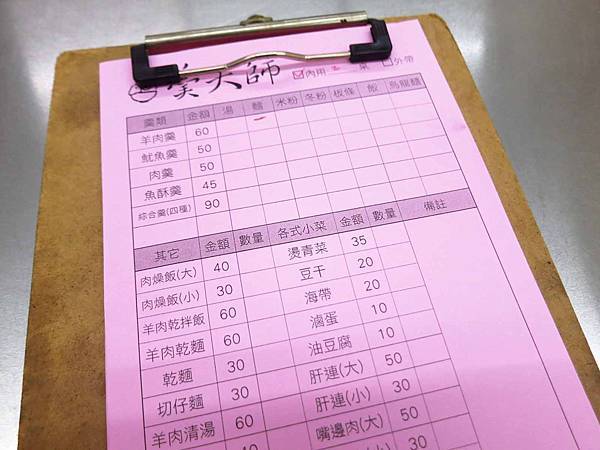 羹大師 ☑內用 桌 ☐外帶
羹類 金額 湯 麵 米粉 冬粉 板條 飯 烏龍麵
羊肉羹 60
魷魚羹 50
肉羹 50
魚酥羹 45
綜合羹(四種) 90
其它 金額 數量 各式小菜 金額 數量 備註
肉燥飯(大) 40 燙青菜 35
肉燥飯(小) 30 豆干 20
羊肉乾拌飯 60 海帶 20
羊肉乾麵 60 滷蛋 10
乾麵 30 油豆腐 10
切仔麵 30 肝連(大) 50
羊肉清湯 60 肝連(小) 30
嘴邊肉(大) 50
30